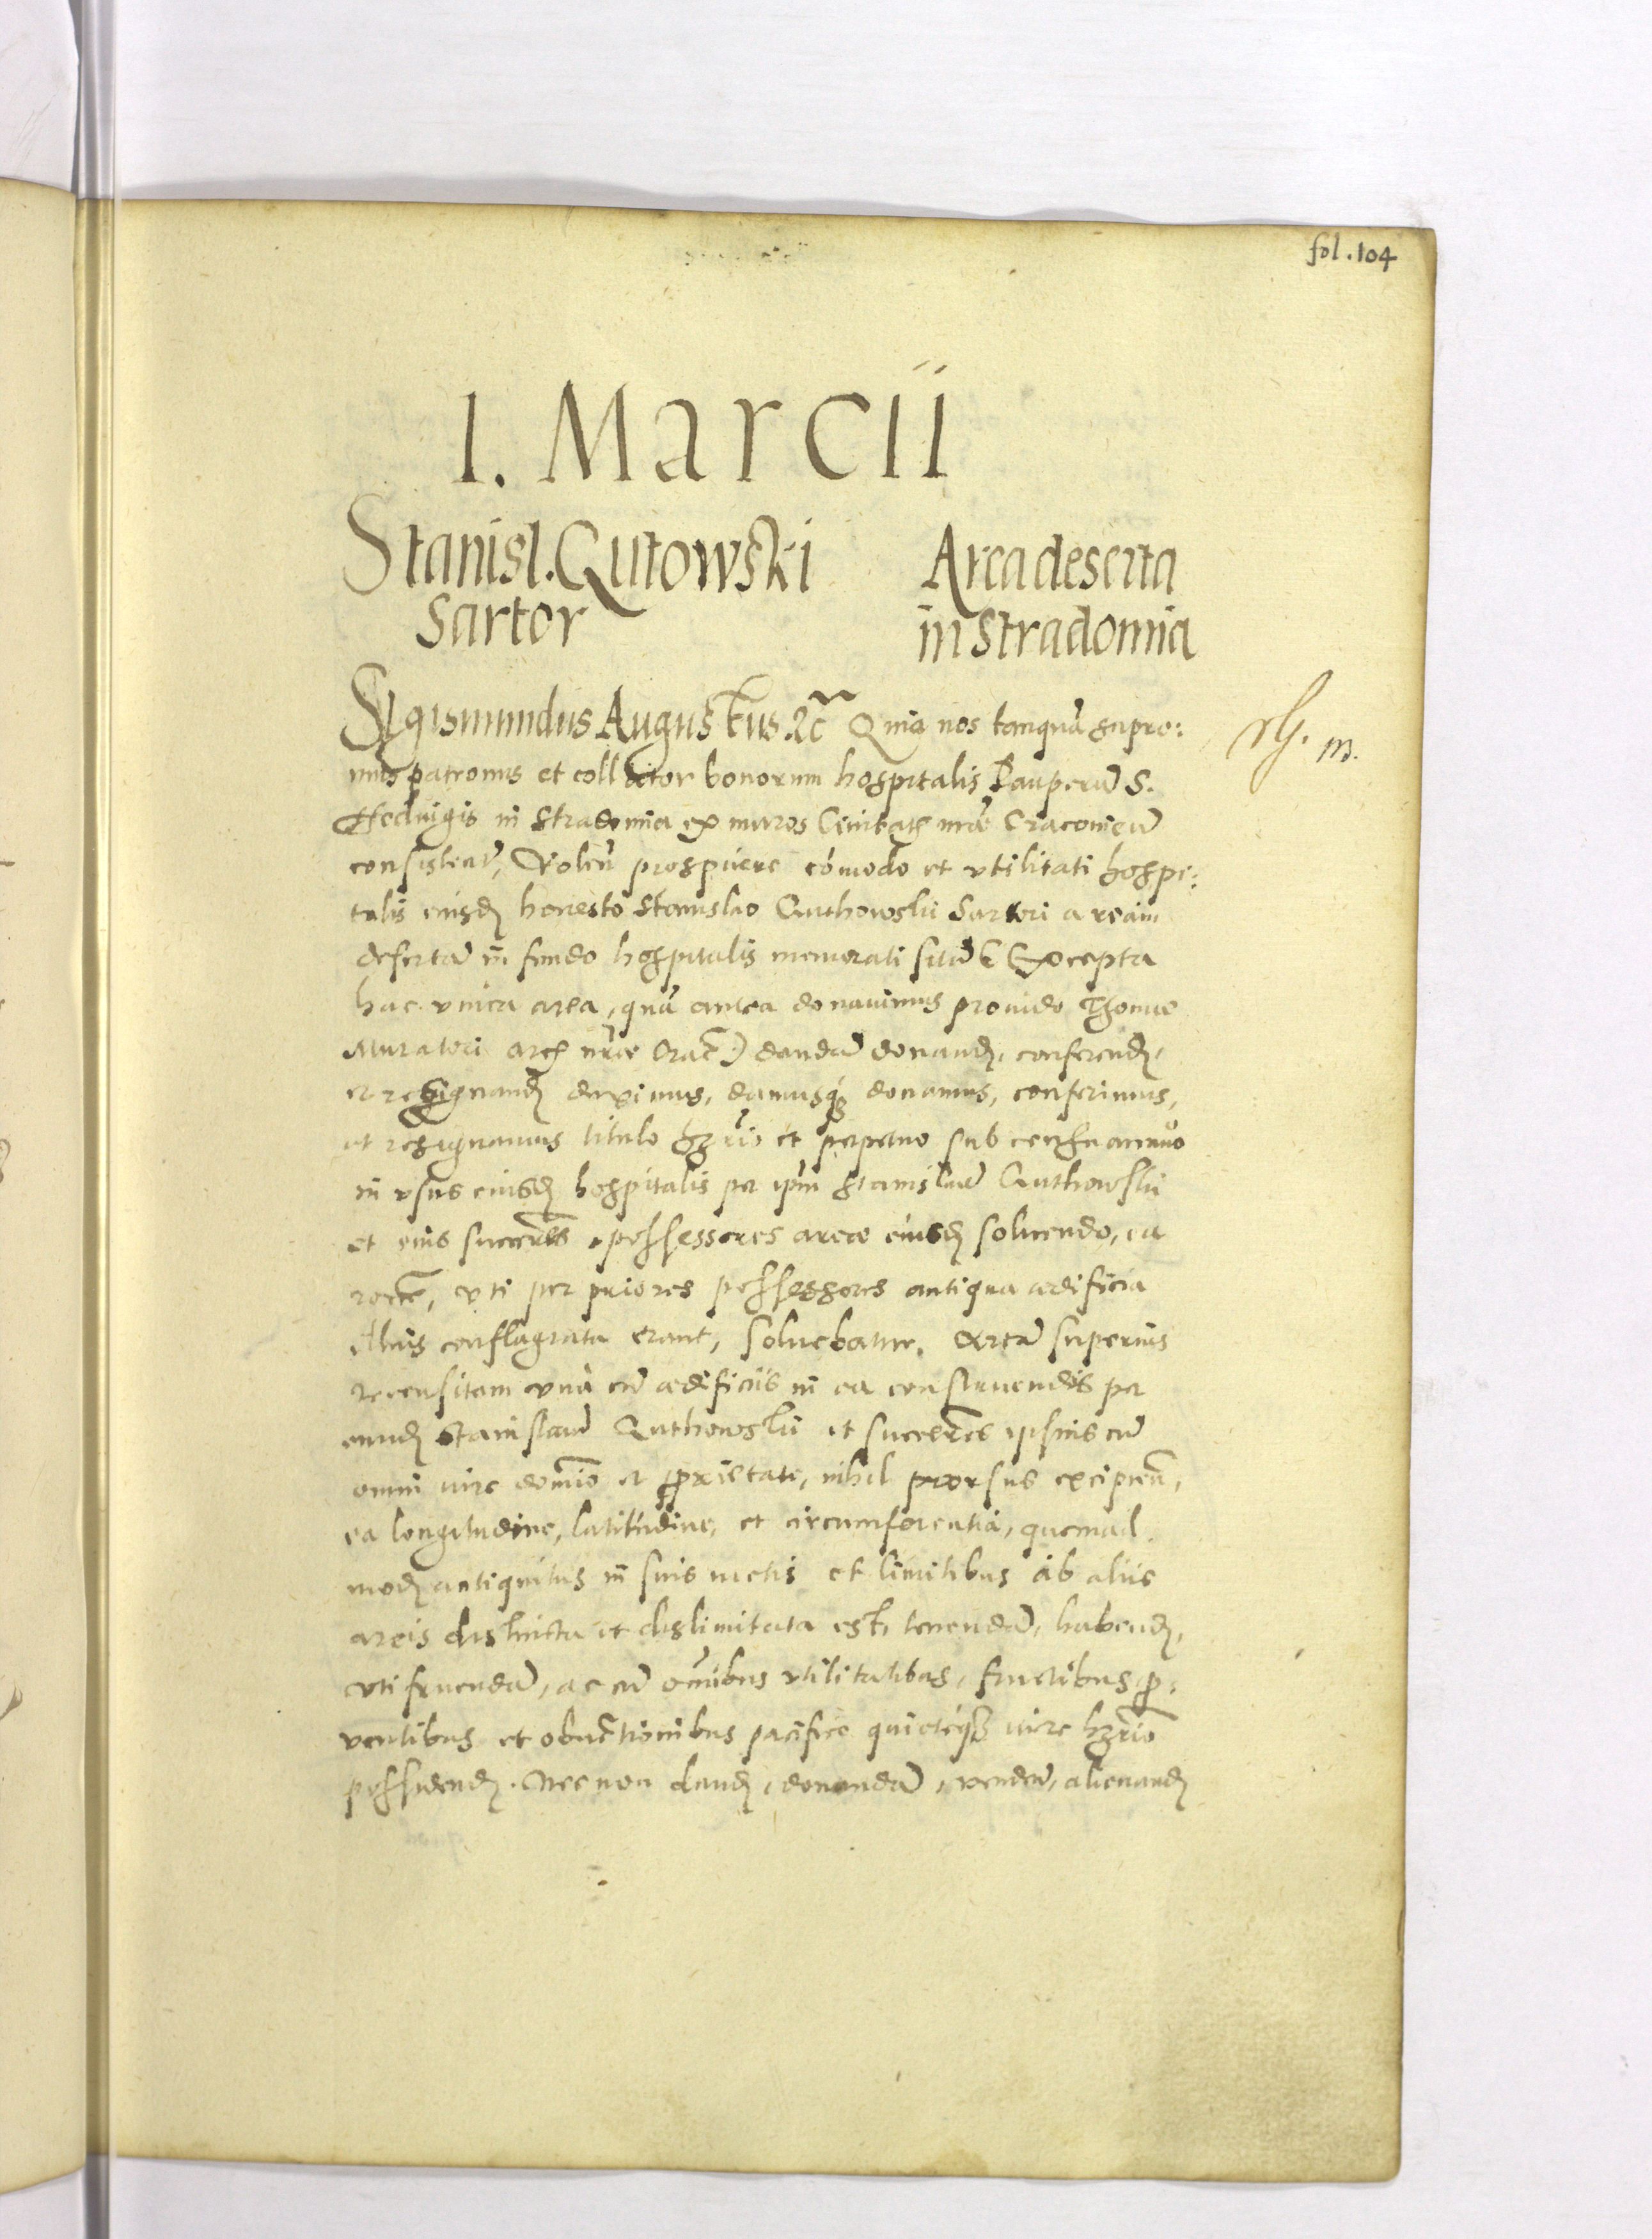 fol. 104
1. Marcii
Stanisl. Qutowski Area deserta
Sartor in Stradomia
Sigismundus Augustus &c̃ Quia nos tanquā supre:
mus patronus et collator bonorum hospitalis Pauperū S.
Heduigis in Stradomia ex muros Ciuitatis nrae Cracouieñ
consisteñ, Voleñ prospicere cōmodo et vtilitati hospi:
talis eiusd honesto Stanislao Quthowski Sartori aream
desertā in fundo hospitalis memorati sitā (Excepta
hac vnica area, quā antea donauimus prouido Thomae
Muratori arcis nrae Crac̃) dandā donand, conferend,
et resignand duximus, damusq donamus, conferimus,
et resignamus titulo hrio et perpetuo sub censu annuo
in vsus eiusd hospitalis per ipm Stanislaū Quthowski
et eius succres possessores areae eiusd soluendo, ea
roe, vti per priores possessores antiqua aedificia
conflagrata erant, soluebatur. Areā superius
recensitam vnà cū aedificiis in ea construendis per
eund Stanislaū Quthowski et succres ipsius cū
omni iure domio et prietate, nihil prorsus excipieñ,
ea longitudine, latitudine, et circumferentia, quemad
mod antiquitus in suis metis et limitibus ab aliis
areis distincta et dislimitata est, tenendā, habend,
vti fruendā, ac cū omibus vtilitatibus, fructibus, p
uentibus et obuentionibus pacifice quieteq iure hrio
possidend. Nec non dand, donandā, vendeñ, alienand